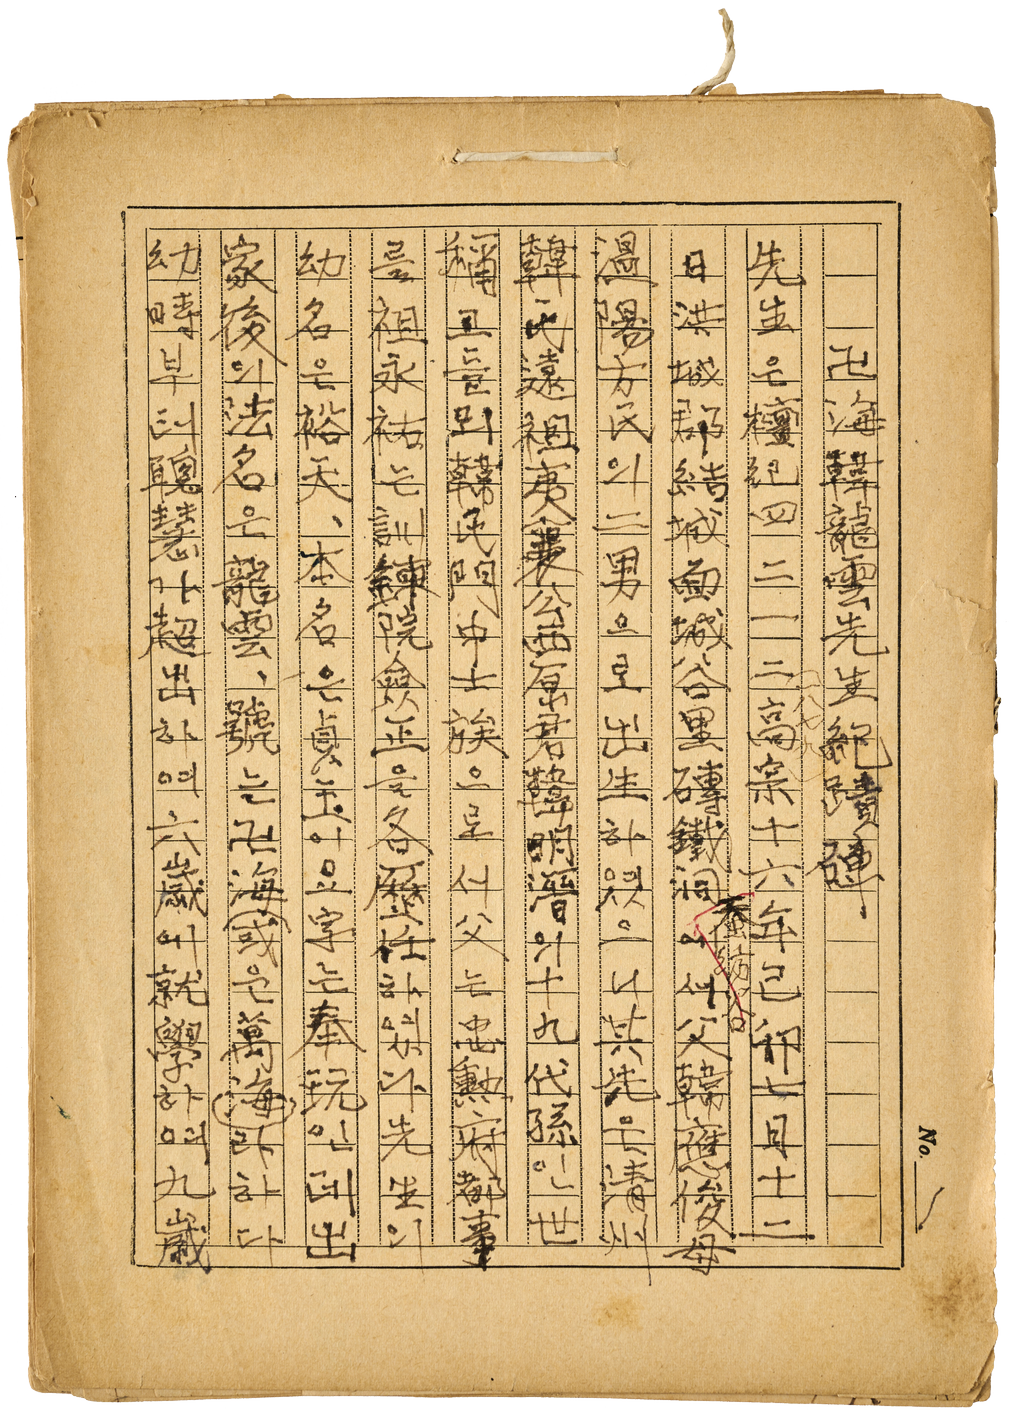 卍海韓龍雲先生紀蹟碑
先生은檀紀四二一二高宗十六年己卯七月十二
日洪城郡結城面城谷里磚鐵洞에서父韓應俊母
溫陽方氏의二男으로出生하였으니其先은淸州
韓氏遠祖夷襄公西原君韓明溍의十九代孫인世
稱고등의韓氏門中士族으로서父는忠勳府都事
를祖永祐는訓鍊院僉正을各歷任하였다先生의
幼名은裕天、本名은貞玉이요字는奉玩인데出
家後의法名은龍雲、號는卍海或은萬海라하다
幼時부터聰慧가超出하여六歲에就學하여九歲
No.